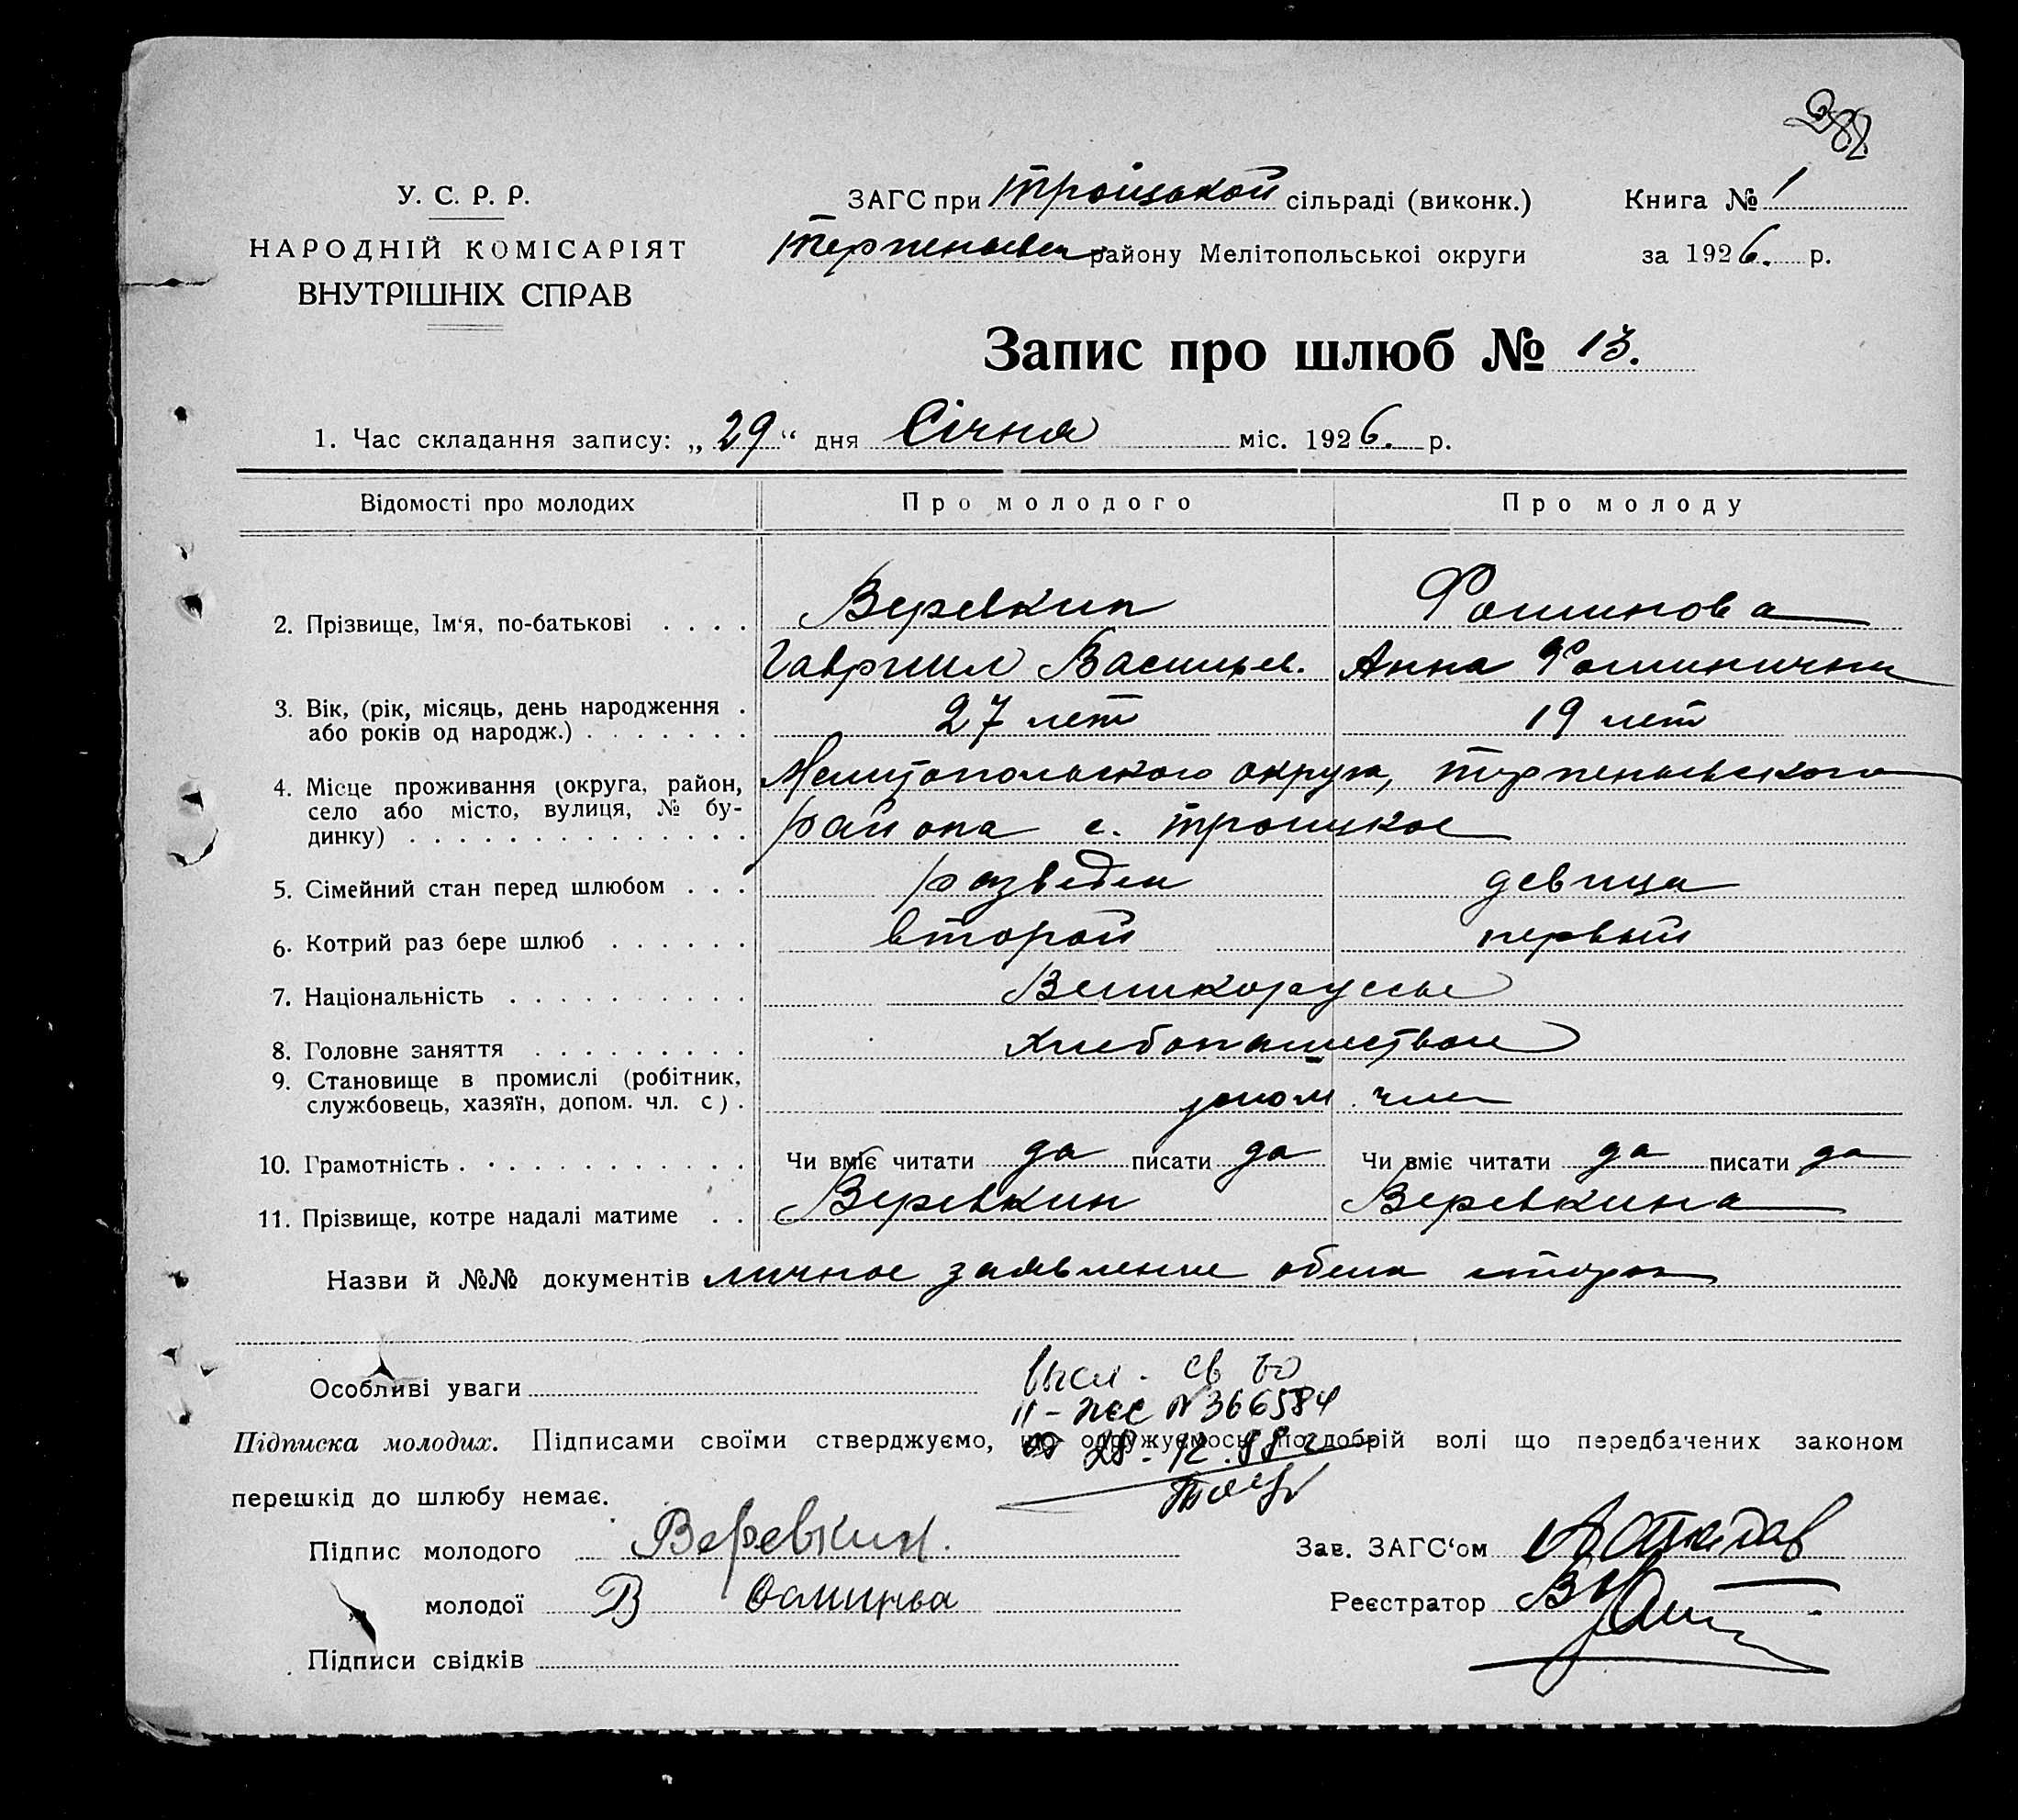 У. С. Р. Р.
НАРОДНІЙ КОМІСАРІЯТ
ВНУТРІШНІХ СПРАВ
ЗАГС при Троіцькой сільраді (виконк.)
району Мелітопольськоі округи
Книга № 1
за 1926. р.
Запис про шлюб № 13.
1. Час складання запису: „29“ дня Січня міс. 1926. р.
Відомості про молодих
Про молодого
Про молоду
2. Прізвище, Ім‘я, по-батькові
Веревкин
Фоминова
Гавриил Васильев.
Анна Фоминична
3. Вік, (рік, місяць, день народження
або років од народж.)
27 лет
19 лет
4. Місце проживання (округа, район,
село або місто, вулиця, № бу-
динку)
Мелитопольского округа, терпеньевского
района с. троицкое
5. Сімейний стан перед шлюбом
разведен
девица
6. Котрий раз бере шлюб
второй
первый
7. Національність
Великоруссы
8. Головне заняття
хлебопашеством
9. Становище в промислі (робітник,
службовець, хазяїн, допом. чл. с).
член
10. Грамотність
Чи вміє читати да писати да
Чи вміє читати да писати да
11. Прізвище, котре надалі матиме
Веревкин
Веревкина
Назви й №№ документів личное заявление обеих сторон
Особливі уваги
№ 366584
28.12.88 г
Підписка молодих. Підписами своїми стверджуємо, що одружуємось по добрій волі що передбачених законом
перешкід до шлюбу немає.
Підпис молодого Веревкин.
Зав. ЗАГС‘ом
молодої
Реєстратор
Підписи свідків